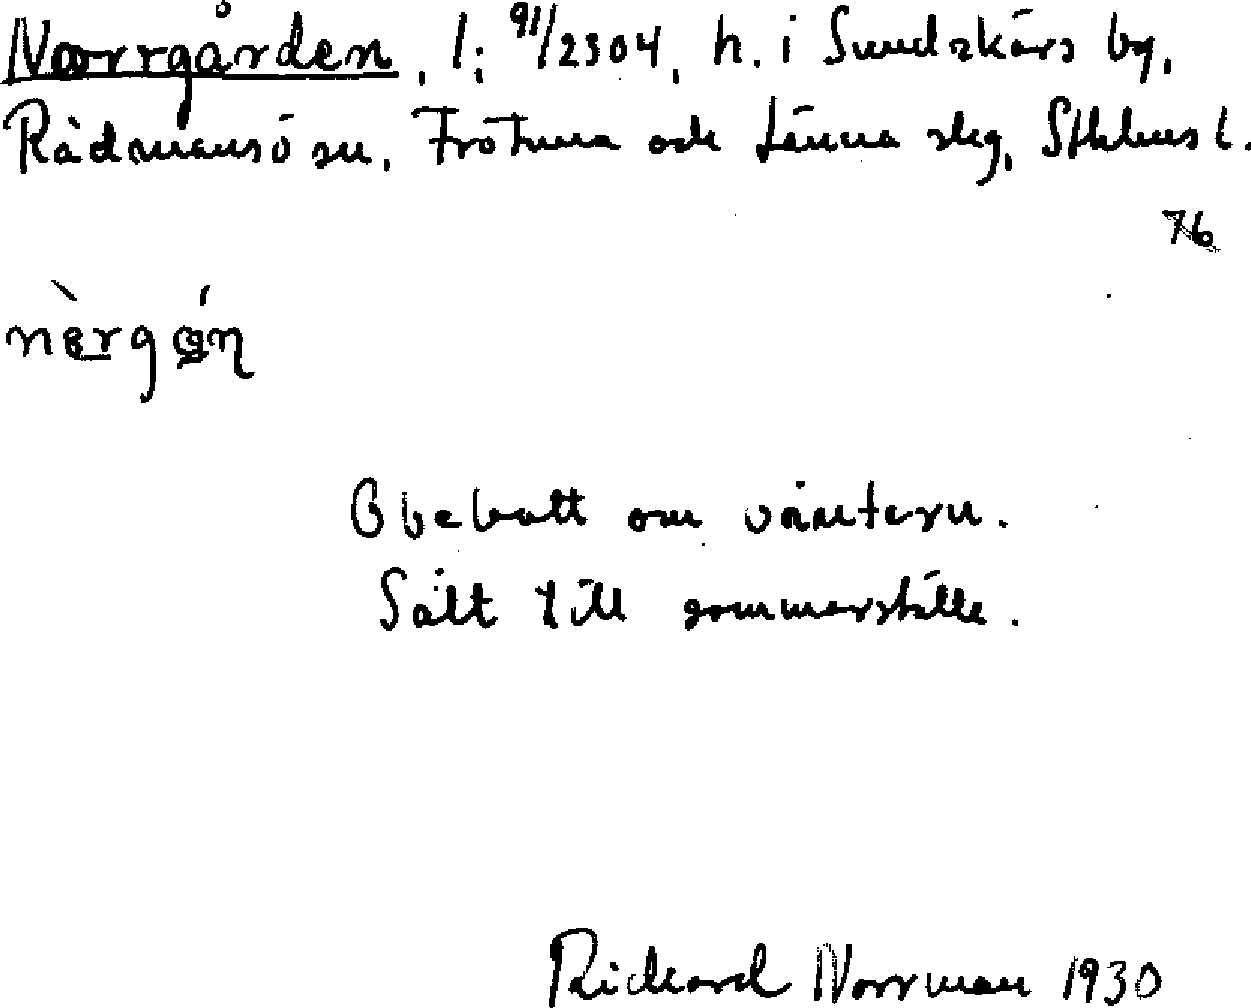 Norrgården, 1:91/2304, h. i Sundskärs by,
Rådmansö sn, Frötuna och Länna slg, Sthlms l.
76
Obebott om vintern.
Sålt till sommarställe.
Richard Norrman 1930